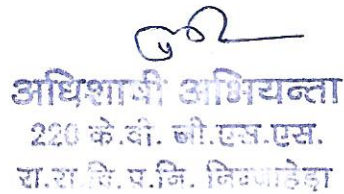 अधिशाषी अभियन्ता
220 के.वी. जी.एस.एस.
रा.रा.वि.प्र.नि.